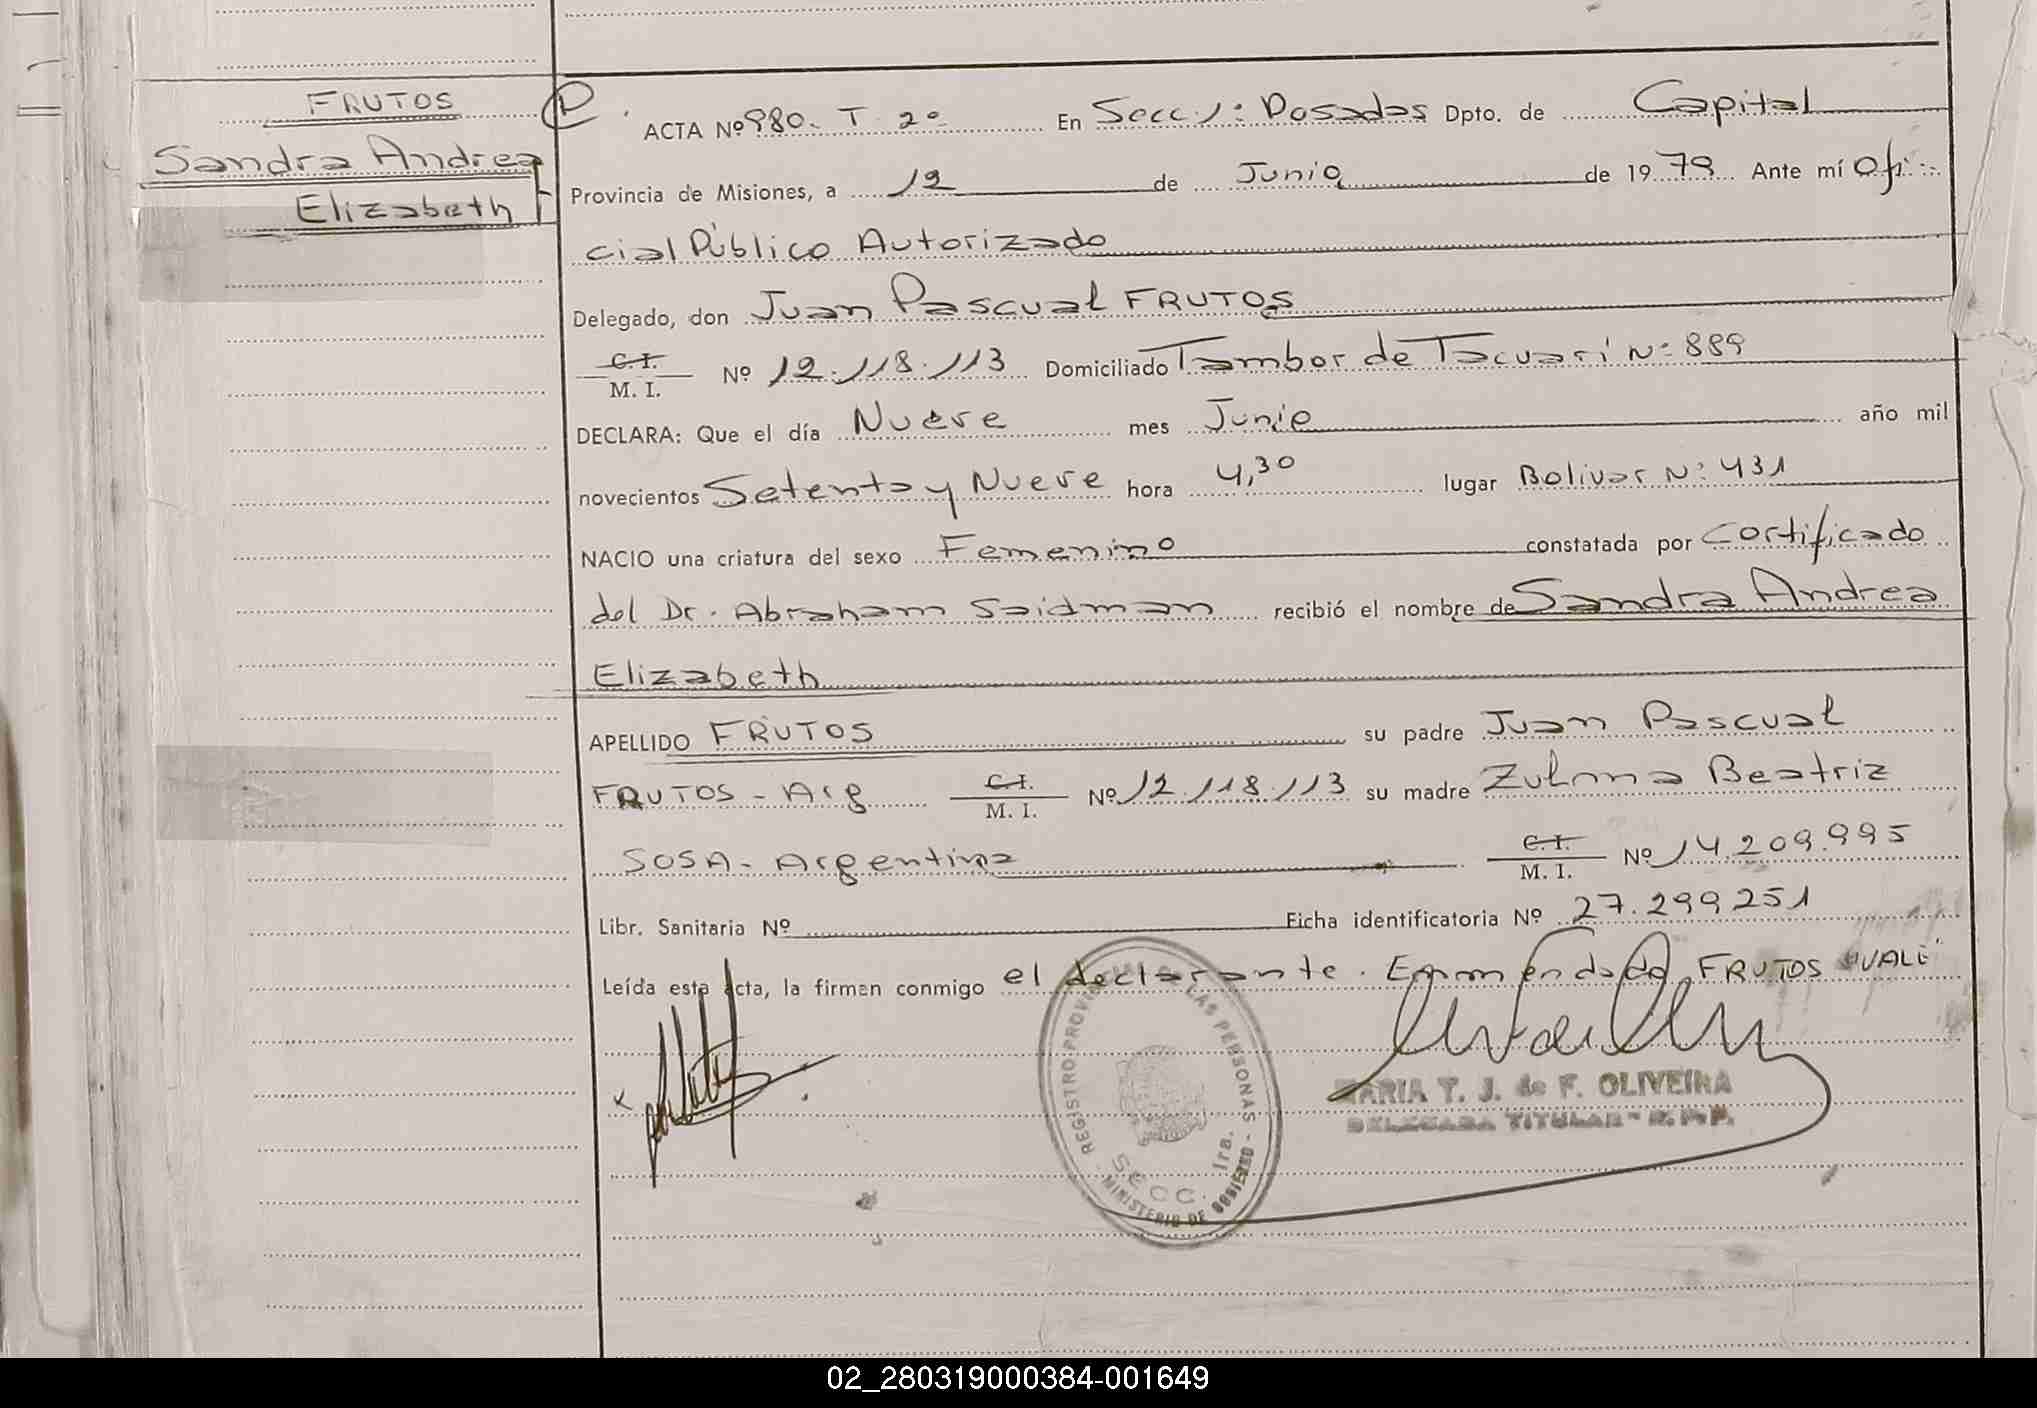 FRUTOS
Sandra Andrea
Elizabeth
ACTA Nº 980. T. 2º En Secc. 1: Posadas Dpto. de Capital
Provincia de Misiones, a 12 de Junio de 1979 Ante mí Ofi
cial Público Autorizado
Delegado, don Juan Pascual FRUTOS
C.I.
M. I. Nº 12.118.113 Domiciliado Tambor de Tacuarí Nº 889
DECLARA: Que el día Nueve mes Junio año mil
novecientos Setenta y Nueve hora 4,30 lugar Bolivar Nº 431
NACIO una criatura del sexo Femenino constatada por Certificado
del Dr. Abraham Saidman recibió el nombre de Sandra Andrea
Elizabeth
APELLIDO FRUTOS su padre Juan Pascual
FRUTOS - Arg C.I. M. I. Nº 12.118.113 su madre Zulma Beatriz
SOSA - Argentina C.I. M. I. Nº 14.209.995
Libr. Sanitaria Nº Ficha identificatoria Nº 27.299251
Leída esta acta, la firman conmigo el declarante. Enmendado FRUTOS "VALE"
REGISTRO PROVINCIAL DE LAS PERSONAS - MINISTERIO DE GOBIERNO
SECC. 1ra.
MARIA T. J. de F. OLIVEIRA
DELEGADA TITULAR - R.P.P.
02_280319000384-001649